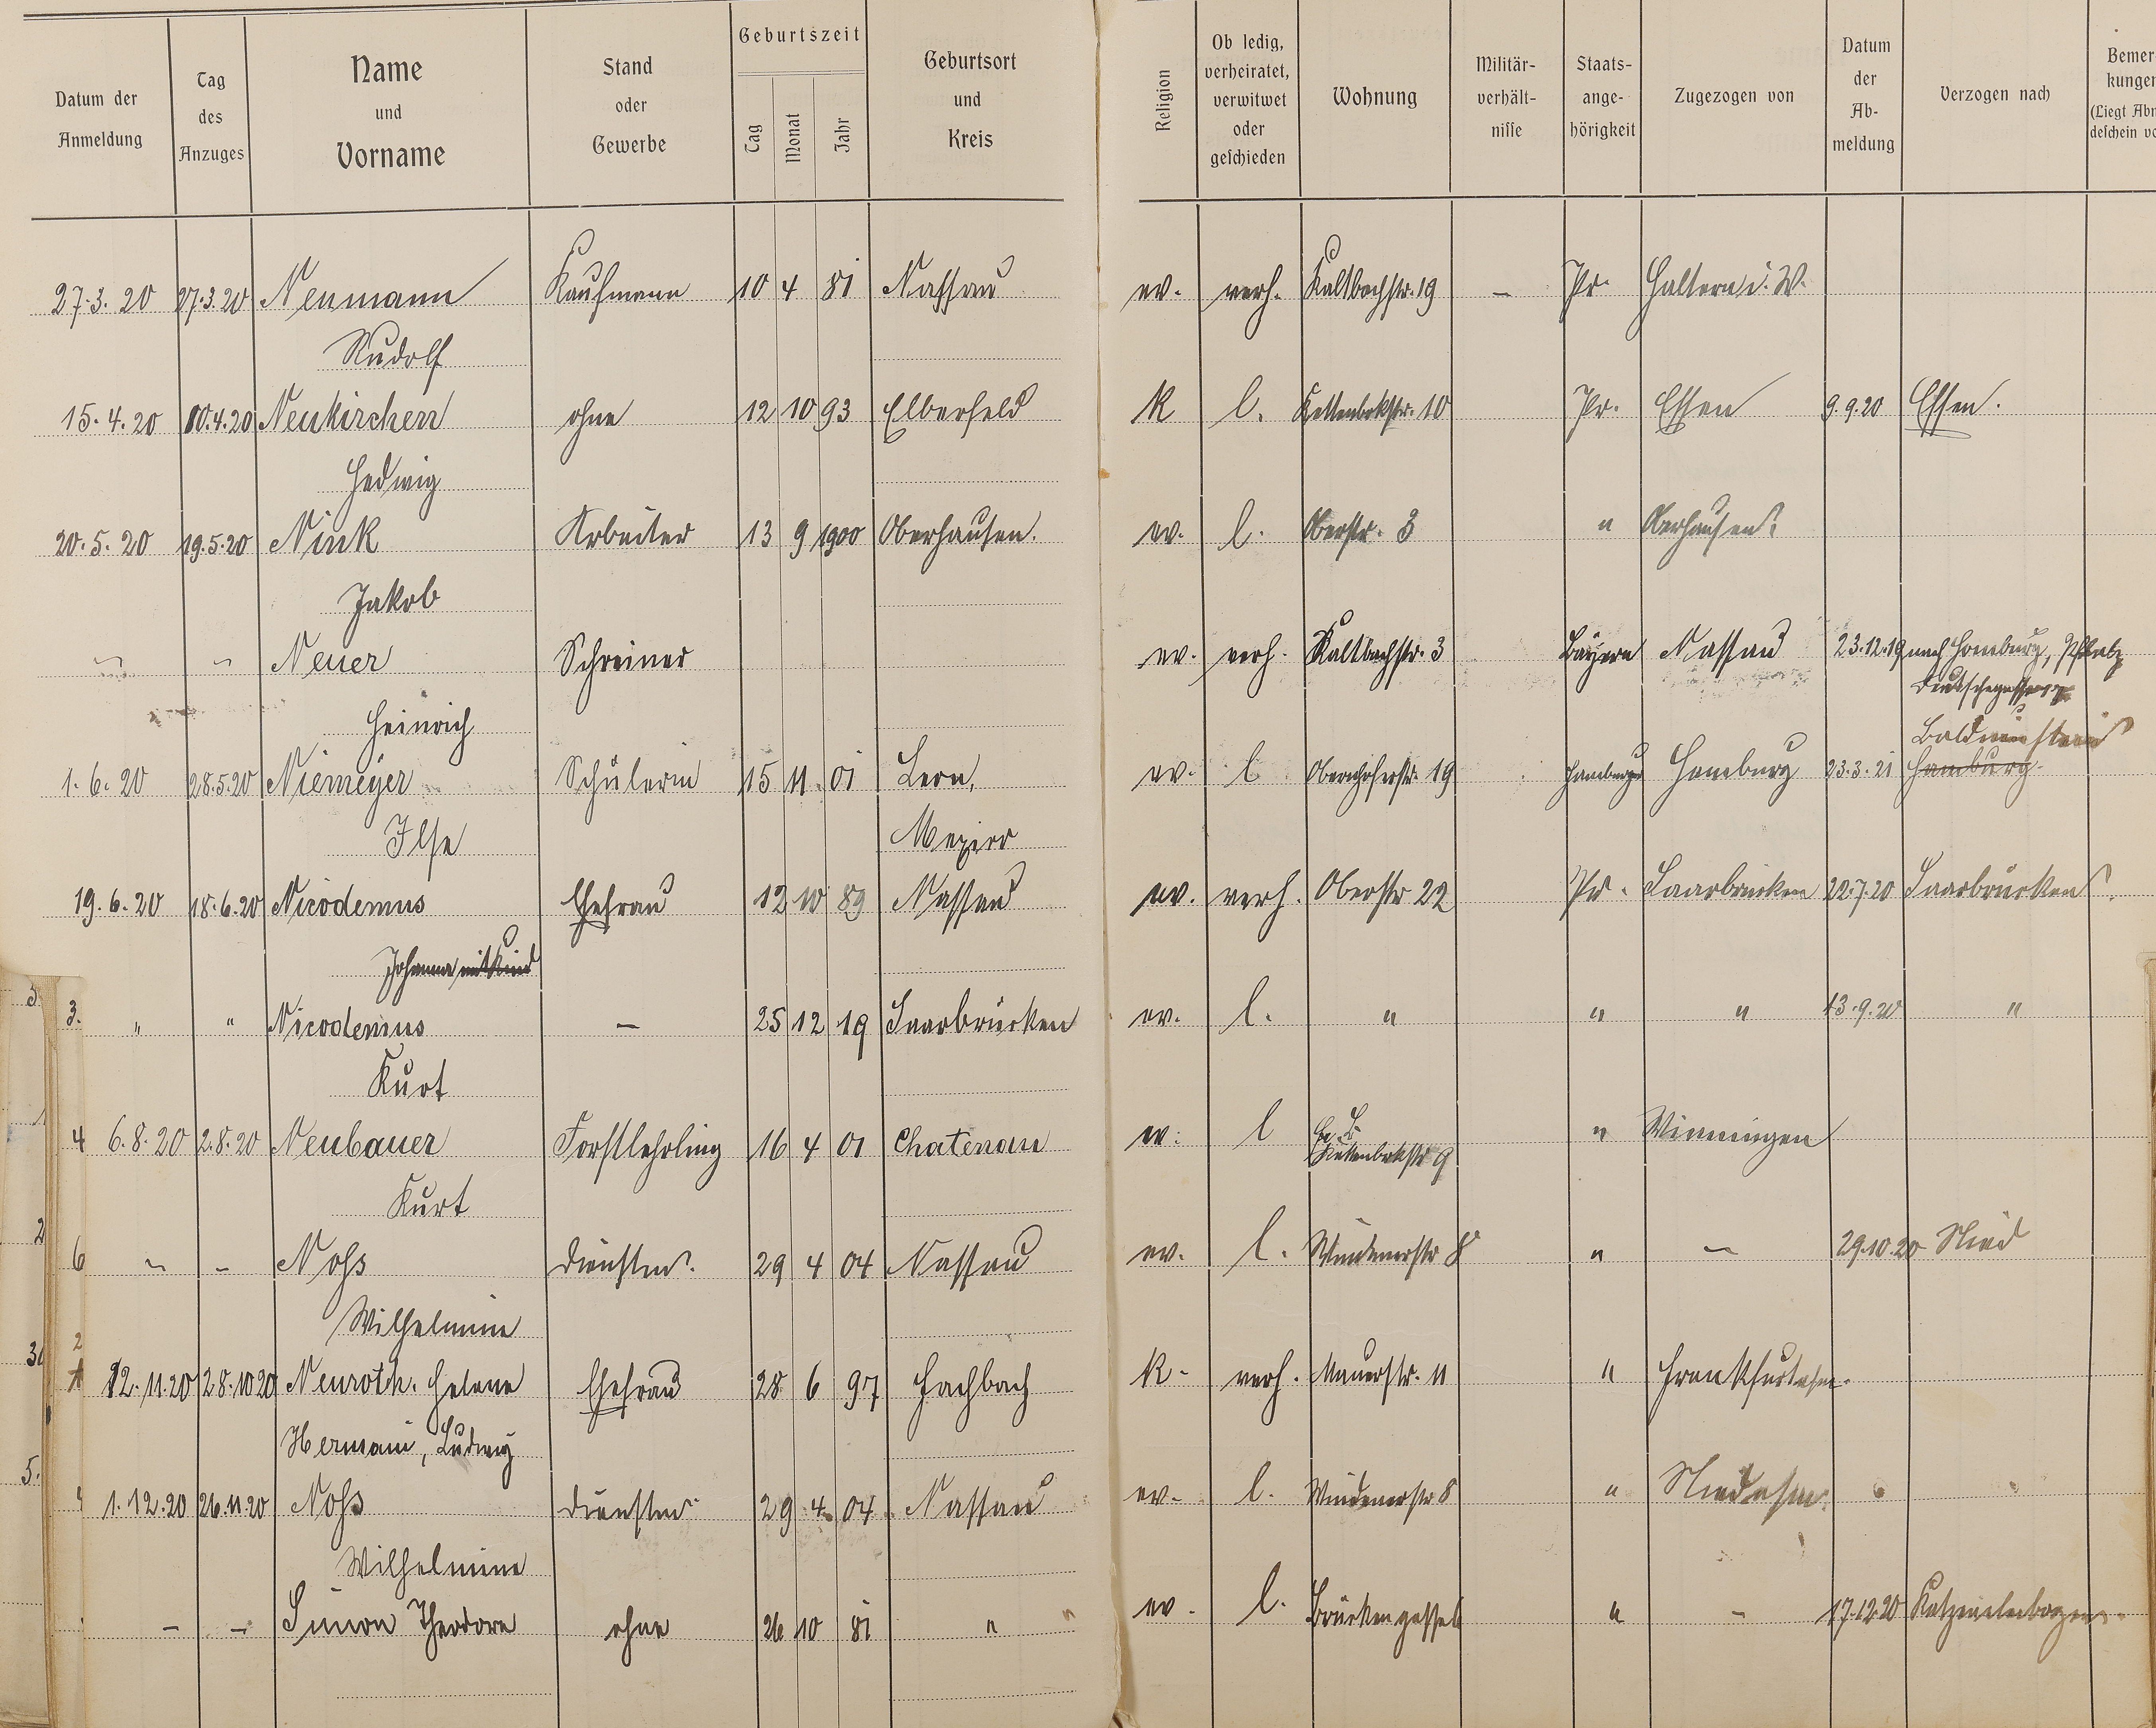 Datum der Anmeldung
Tag des Anzuges
Name und Vorname
Stand oder Gewerbe
Geburtszeit
Tag Monat Jahr
Geburtsort und Kreis
Religion
Ob ledig, verheiratet, verwitwet oder geschieden
Wohnung
Militär-verhält-nisse
Staats-ange-hörigkeit
Zugezogen von
Datum der Ab-meldung
Verzogen nach
Bemer-kungen
(Liegt Abm
27.3.20 27.3.20 Neumann Kaufmann 10 4 81 Nassau ev. verh. Kaltbachstr. 19 – Pr. Haltern i. W.
Rudolf
15.4.20 10.4.20 Neukirchen ohne 12 10 93 Elberfeld K l. Kettenbrkstr. 10 Pr. Essen 9.9.20 Essen.
Hedwig
20.5.20 19.5.20 Nink Arbeiter 13 9 1900 Oberhausen. ev. l. Oberstr. 3 " Oberhausen.
Jakob
Neuer Schreiner ev. verh. Kaltbachstr. 3 Bayern Nassau 23.12.19 nach Homburg,
Heinrich
Balduinstein
1.6.20 28.5.20 Niemeyer Schülerin 15 11 01 Leon, ev. l Obernhoferstr. 19 Hamburg Hamburg 23.3.21 Hamburg
Ilse Mexico
19.6.20 18.6.20 Nicodemus Ehefrau 12 10 89 Nassau ev. verh. Oberstr 22 Pr. Saarbrücken 22.7.20 Saarbrücken.
Johanna mit Kind
3. " " Nicodemus – 25 12 19 Saarbrücken ev. l. " " " 13.9.20 "
Kurt
4 6.8.20 2.8.20 Neubauer Forstlehrling 16 4 01 Chatenau ev. l Kettenbrkstr 9 " Winningen
Kurt
6 – – Nohs Dienstm. 29 4 04 Nassau ev. l. Windenerstr 8 " – 29.10.20 Nied
Wilhelmine
12.11.20 28.10.20 Neuroth. Helene Ehefrau 28 6 97 Fachbach K. verh. Mauerstr. 11 " Frankfurt a/m.
Hermann, Ludwig
1.12.20 26.11.20 Nohs Dienstm. 29 4 04 Nassau ev. l. Windenerstr 8 " Nied a/m.
Wilhelmine
– – Simon Theodore ohne 26 10 81 " ev. l. Brückengasse " – 17.12.20 Katzenelnbogen.